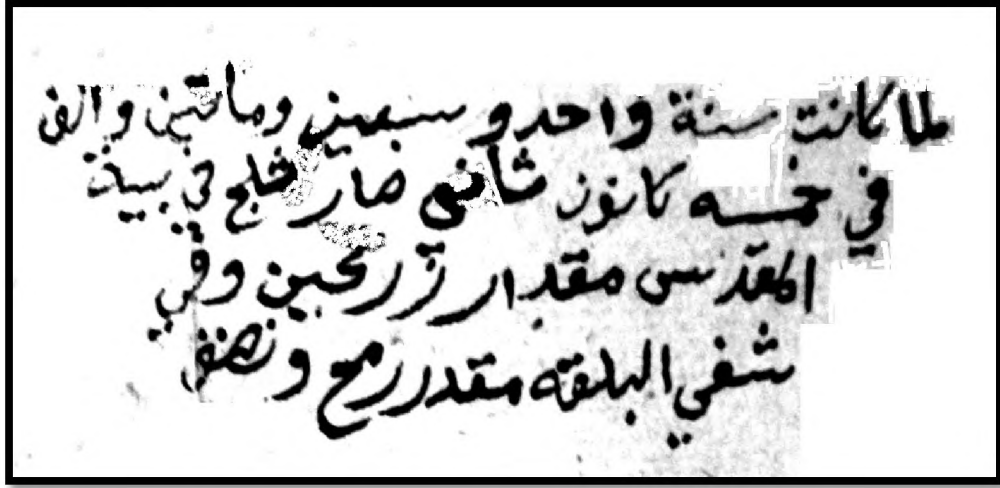 لما كانت سنة واحد و سبعين وماتين والف
في خمسه كانون ثاني صار ثلج في بيت
المقدس مقدار رمحين وفي
شفي البلقه مقدر رمح ونصف